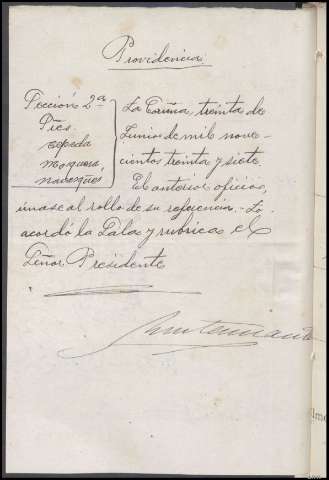 Providencia
Sección 2ª
Sres
Cepeda
Mosquera
La Coruña, treinta de
Junio de mil nove-
cientos treinta y siete.
El anterior oficio,
únase al rollo de su referencia.- Lo
acordó la Sala y rubrica el
Señor Presidente